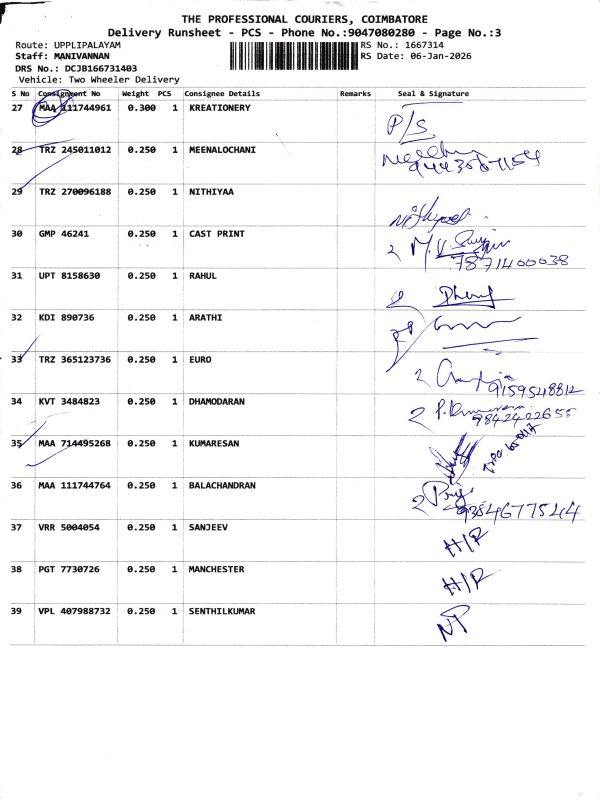 THE PROFESSIONAL COURIERS, COIMBATORE
Delivery Runsheet - PCS - Phone No.:9047080280 - Page No.:3
Route: UPPLIPALAYAM RS No.: 1667314
Staff: MANIVANNAN RS Date: 06-Jan-2026
DRS No.: DCJB166731403
Vehicle: Two Wheeler Delivery
S No Consignment No Weight PCS Consignee Details Remarks Seal & Signature
27 MAA 111744961 0.300 1 KREATIONERY P/S
28 TRZ 245011012 0.250 1 MEENALOCHANI
29 TRZ 270096188 0.250 1 NITHIYAA
30 GMP 46241 0.250 1 CAST PRINT 2
7871400038
31 UPT 8158630 0.250 1 RAHUL
32 KDI 890736 0.250 1 ARATHI
33 TRZ 365123736 0.250 1 EURO 2
9159548812
34 KVT 3484823 0.250 1 DHAMODARAN 2
9842402655
35 MAA 714495268 0.250 1 KUMARESAN
36 MAA 111744764 0.250 1 BALACHANDRAN 2
9384677544
37 VRR 5004054 0.250 1 SANJEEV H/R
38 PGT 7730726 0.250 1 MANCHESTER H/R
39 VPL 407988732 0.250 1 SENTHILKUMAR NP